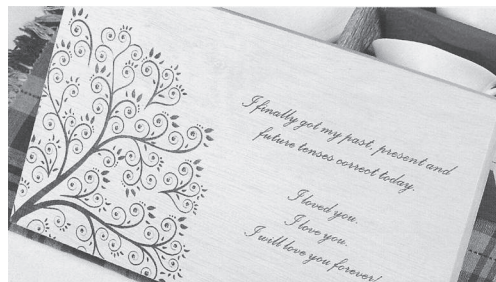 I finally got my past, present and
future tenses correct today.
I loved you.
I love you.
I will love you forever!